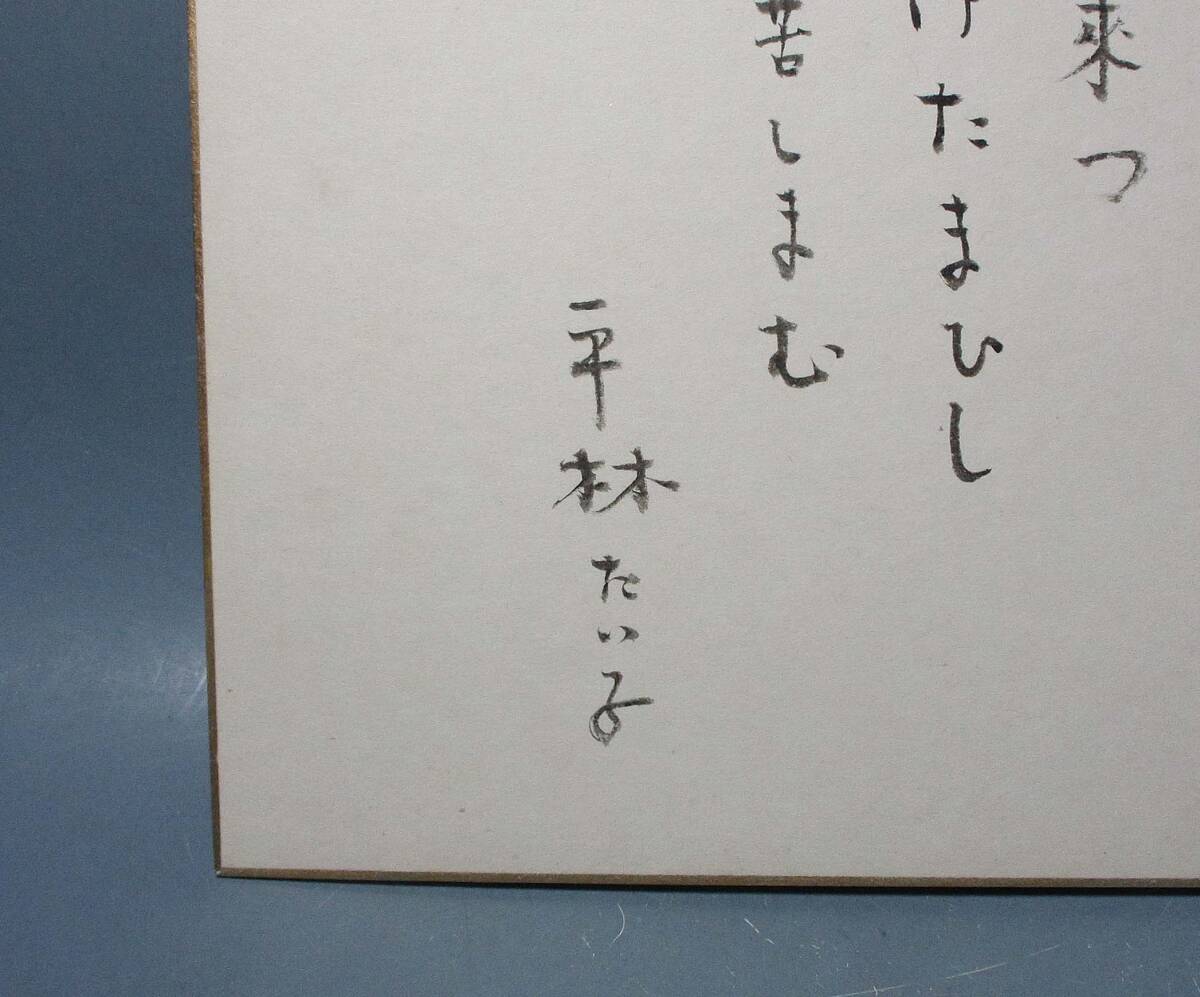 來つ
けたまひし
苦しまむ
平林たい子